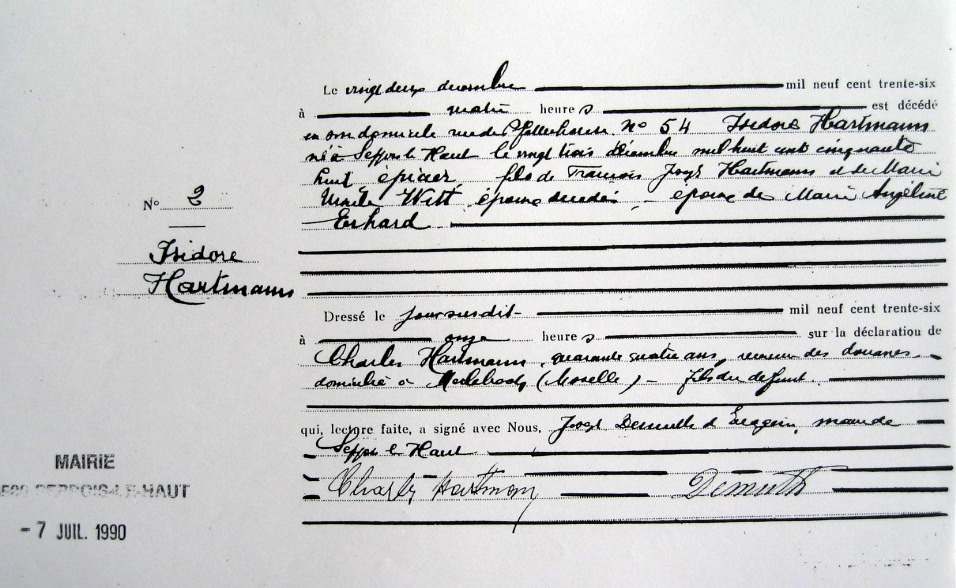 Le vingt deux décembre mil neuf cent trente-six
à quatre heures est décédé
en son domicile rue de No 54 Isidore Hartmann
né à Seppois le Haut le vingt trois décembre mil huit cent cinquante
huit épicier fils de François Joseph Hartmann et de Marie
Witt époux décédés – époux de Marie Angéline
Erhard
No 2
Isidore
Hartmann
Dressé le jour susdit mil neuf cent trente-six
à onze heures sur la déclaration de
Charles Hartmann, quarante quatre ans, receveur des douanes
domicilié à Merlebach (Moselle) – fils du défunt.
qui, lecture faite, a signé avec Nous, Joseph Demuth maire de
Seppois le Haut
Charles Hartmann Demuth
MAIRIE
SEPPOIS-LE-HAUT
- 7 JUIL. 1990